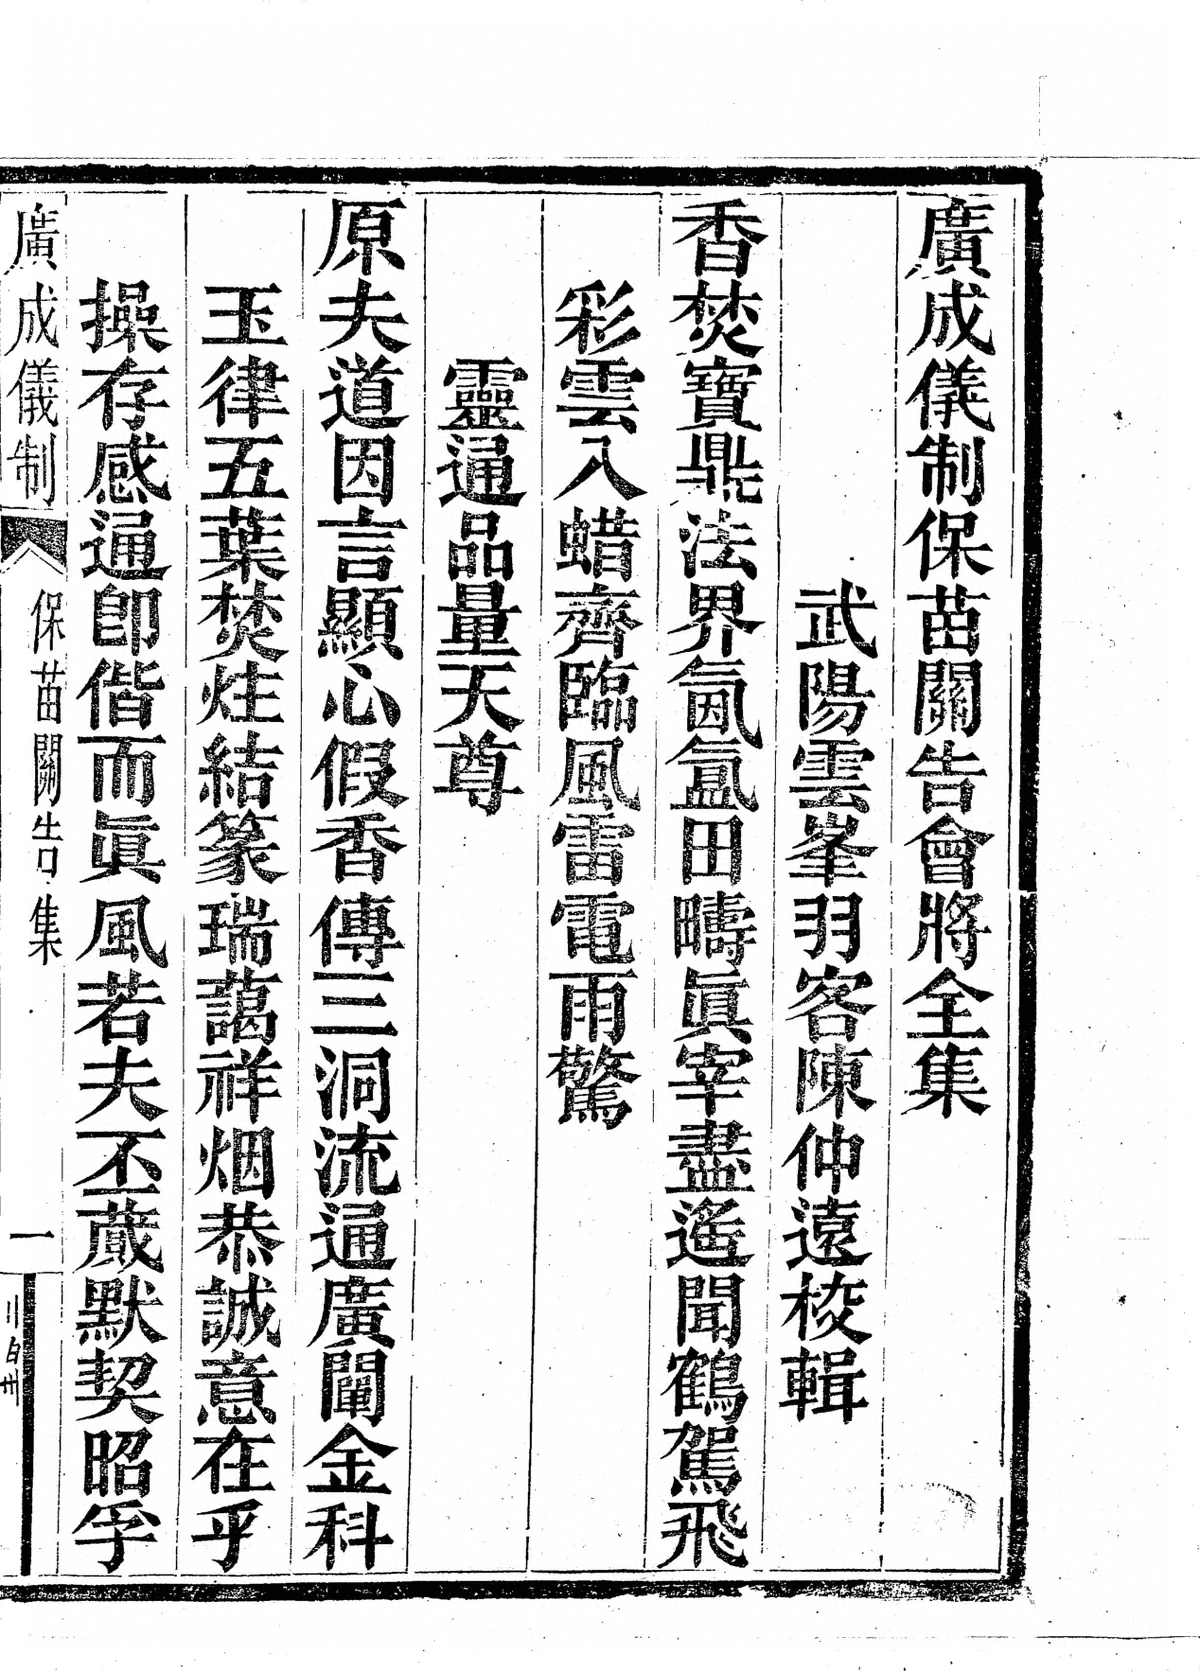 廣成儀制保苗關告會將全集
武陽雲峯羽客陳仲遠校輯
香焚寶鼎法界氤氳田疇眞宰盡遙聞鶴駕飛
彩雲入蜡齊臨風雷電雨驚
靈通品量天尊
原夫道因言顯心假香傳三洞流通廣闡金科
玉律五葉焚炷結篆瑞藹祥烟恭誠意在乎
操存感通卽偕而眞風若夫丕蕆默契昭孚
廣成儀制
保苗關告集
一